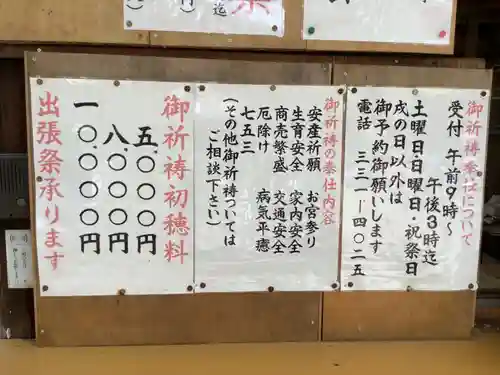 迄
祭
円
御祈祷奉仕について
受付　午前9時～
午後3時迄
土曜日・日曜日・祝祭日
戌の日以外は
御予約御願いします
電話　331－4025
御祈祷の奉仕内容
安産祈願　お宮参り
生育安全　家内安全
商売繁盛　交通安全
厄除け　病気平癒
七五三
(その他御祈祷については
ご相談下さい)
御祈祷初穂料
五、〇〇〇円
八、〇〇〇円
一〇、〇〇〇円
出張祭承ります